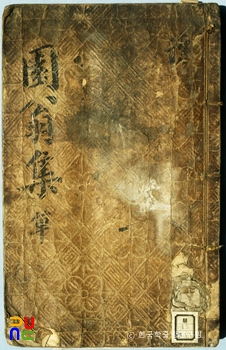 園翁集 單
(c) 한국학중앙연구원